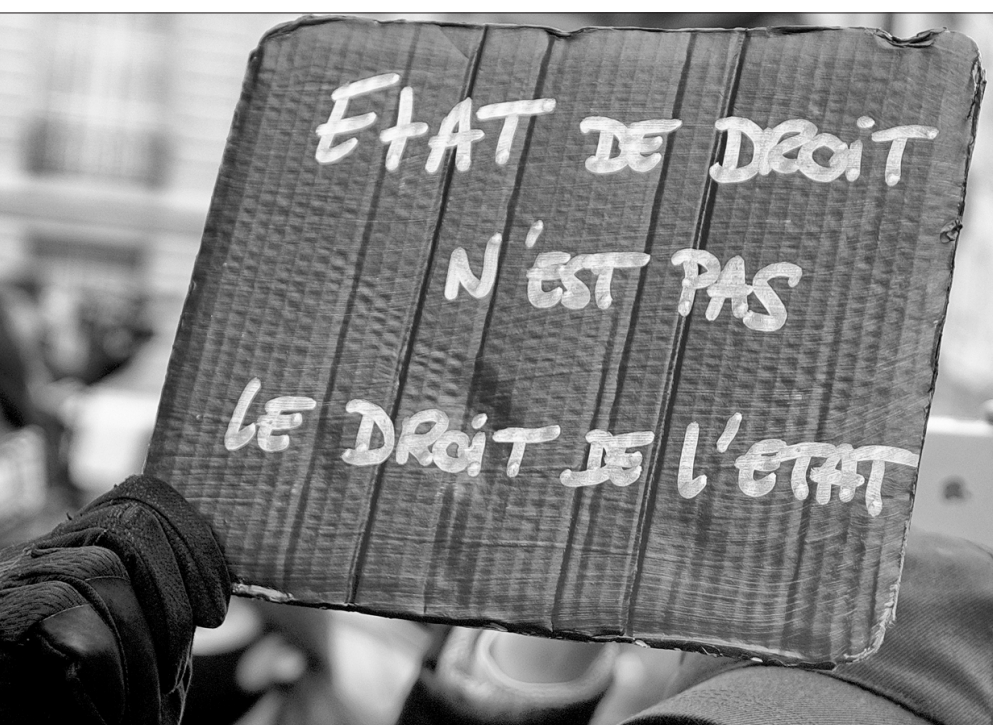 ETAT DE DROiT
N'EST PAS
LE DROiT DE L'ETAT